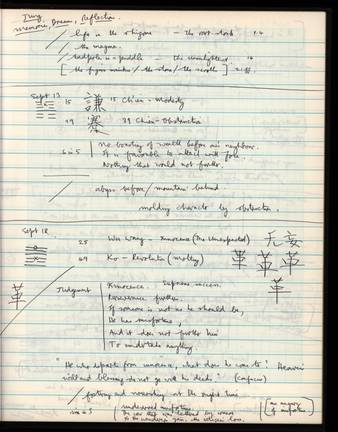 Jung
Memories, Dreams, Reflections
/ life is the rhizome — the root-stock 4
/ the magma.
/ tadpole in a puddle — the unenlightened
Sept 13
15 謙 15 Ch'ien - Modesty
39 蹇 39 Chien - Obstruction
6 in 5 No boasting of wealth before one's neighbour.
It is favorable to attack with force.
Nothing that would not further.
/ abyss before / mountain behind
molding character by obstruction.
Sept 18
25 Wu Wang - Innocence (The Unexpected) 无妄
49 Ko - Revolution (molting) 革 革 革
革 革
Judgment Innocence. Supreme success.
Perseverance furthers.
If someone is not as he should be,
He has misfortune,
And it does not further him
To undertake anything.
"He who departs from innocence, what does he come to? Heaven's
will and blessing do not go with his deeds." (Confucius)
/ furthering and nourishing at the right time
six in 3 undeserved misfortune.
The cow that was tethered by someone
is the wanderer's gain, the citizen's loss.